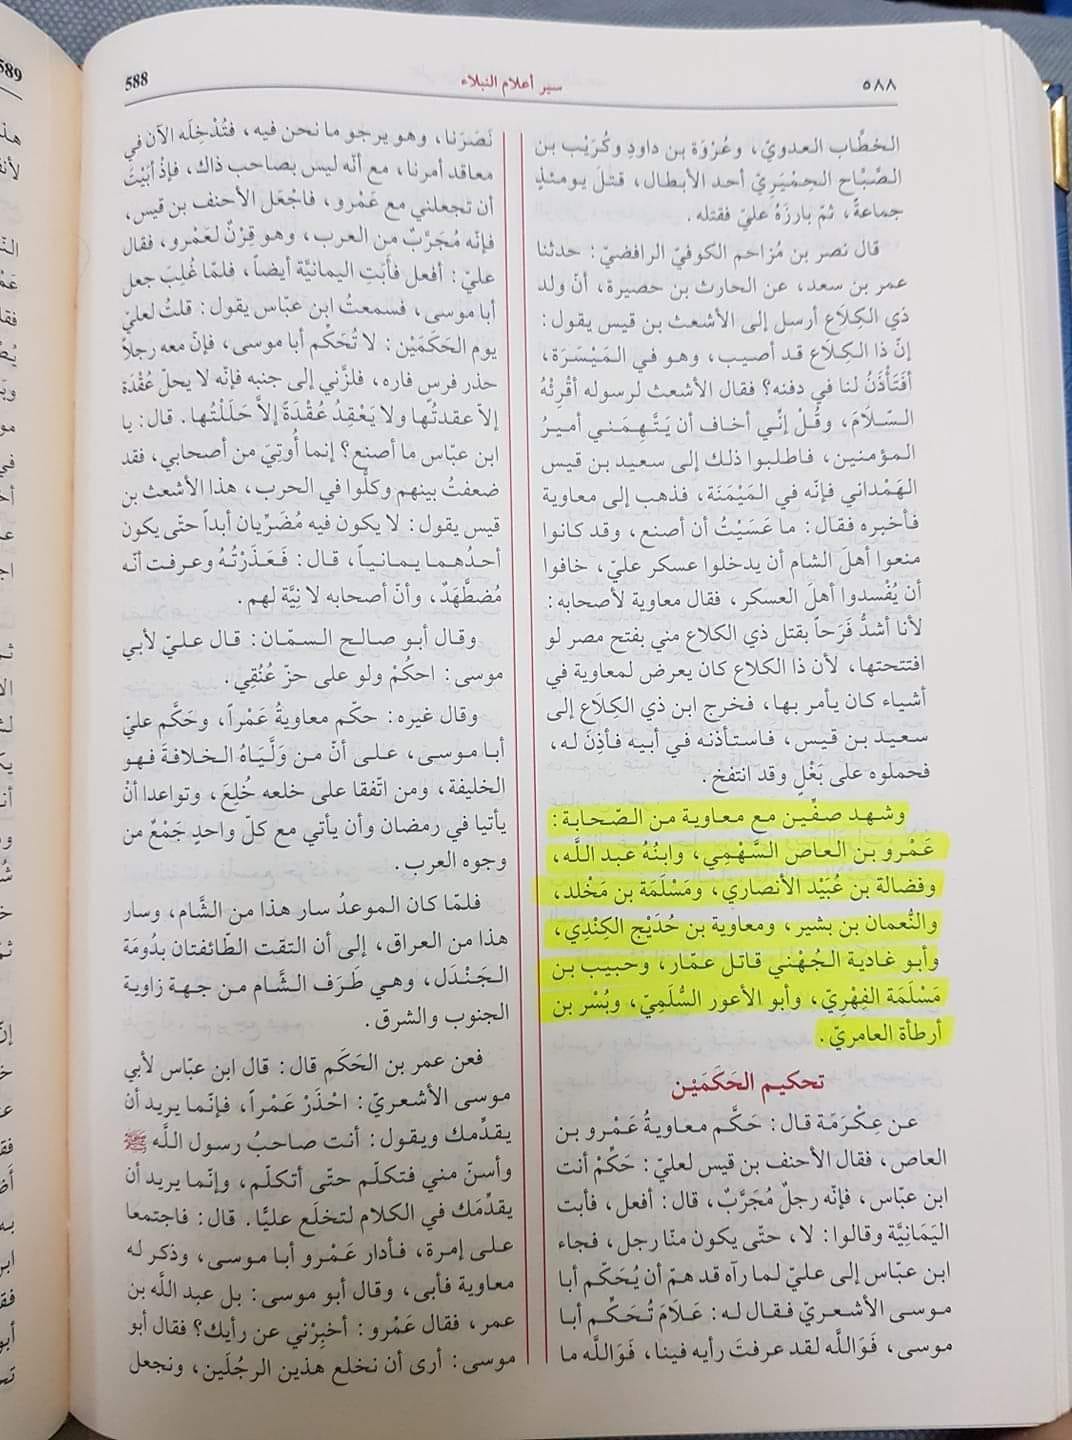 588
سير أعلام النبلاء
٥٨٨
الخطَّاب العدويّ، وعُرْوَة بن داود وكُرَيْب بن
الصَّبَّاح الحِمْيَريّ أحد الأبطال، قتلَ يومئذٍ
جماعةً، ثمّ بارزَهُ عليّ فقتله.
قال نصر بن مُزَاحم الكوفيّ الرافضيّ: حدثنا
عمر بن سعد، عن الحارث بن حصيرة، أنّ ولد
ذي الكِلَاع أرسل إلى الأشعث بن قيس يقول:
إنّ ذا الكِلَاع قد أصيب، وهو في المَيْسَرَة،
أفَتَأْذَنُ لنا في دفنه؟ فقال الأشعث لرسوله أقْرِئْهُ
السّلَامَ، وقُلْ إنّي أخاف أن يَتَّهِمَني أميرُ
المؤمنين، فاطلبوا ذلك إلى سعيد بن قيس
الهَمْداني فإنّه في المَيْمَنَة، فذهب إلى معاوية
فأخبره فقال: ما عَسَيْتُ أن أصنع، وقد كانوا
منعوا أهلَ الشام أن يدخلوا عسكر عليّ، خافوا
أن يُفْسدوا أهلَ العسكر، فقال معاوية لأصحابه:
لأنا أشدُّ فَرَحاً بقتل ذي الكلاع مني بفتح مصر لو
افتتحتها، لأن ذا الكلاع كان يعرض لمعاوية في
أشياء كان يأمر بها، فخرج ابن ذي الكِلَاع إلى
سعيد بن قيس، فاستأذنه في أبيه فأذِنَ له،
فحملوه على بَغْلٍ وقد انتفخ.
وشهد صفِّين مع معاوية من الصّحابة:
عَمْرو بن العاص السَّهْمي، وابنُهُ عبد اللَّه،
وفضالة بن عُبَيْد الأنصاري، ومَسْلَمَة بن مَخْلد،
والنُّعمان بن بشير، ومعاوية بن حُدَيْج الكِنْدِي،
وأبو غادية الجُهْني قاتل عمّار، وحبيب بن
مَسْلَمَة الفِهْرِيّ، وأبو الأعور السُّلَمِيّ، وبُسْر بن
أرطأة العامريّ.
تحكيم الحَكَمَيْن
عن عِكْرَمَة قال: حَكَّم معاويةُ عَمْرو بن
العاص، فقال الأحنف بن قيس لعليّ: حَكِّمْ أنت
ابن عبّاس، فإنّه رجلٌ مُجَرَّبٌ، قال: أفعل، فأبت
اليَمَانِيَّة وقالوا: لا، حتّى يكون منّا رجل، فجاء
ابن عبّاس إلى عليّ لما رآه قد همّ أن يُحَكّم أبا
موسى الأشعريّ فقال له: عَلَامَ تُحَكِّم أبا
موسى، فَوَاللَّه لقد عرفتَ رأيه فينا، فَوَاللَّه ما
نَصَرَنا، وهو يرجو ما نحن فيه، فتُدْخِلَه الآن في
معاقد أمرنا، مع أنّه ليس بصاحب ذاك، فإذْ أبَيْتَ
أن تجعلني مع عَمْرو، فاجْعَل الأحنف بن قيس،
فإنّه مُجَرَّبٌ من العرب، وهو قِرْنٌ لعَمْرو، فقال
عليّ: أفعل فأَبَتِ اليمانيَّة أيضاً، فلمّا غُلِبَ جعل
أبا موسى، فسمعتُ ابن عبّاس يقول: قلتُ لعليّ
يوم الحَكَمَيْن: لا تُحَكِّم أبا موسى، فإنّ معه رجلاً
حذر فرس فاره، فلزَّني إلى جنبه فإنّه لا يحلّ عُقْدَة
إلاّ عقدتُها ولا يَعْقِدُ عُقْدَةً إلاَّ حَلَلْتُها. قال: يا
ابن عبّاس ما أصنع؟ إنما أُوتِيَ من أصحابي، فقد
ضعفتْ بينهم وكلُّوا في الحرب، هذا الأشعث بن
قيس يقول: لا يكون فيه مُضَرِّيان أبداً حتّى يكون
أحدُهما يمانياً، قال: فَعَذَرْتُهُ وعرفت أنّه
مُضطَّهَدٌ، وأنّ أصحابه لا نِيَّة لهم.
وقال أبو صالح السمّان: قال عليّ لأبي
موسى: احكُمْ ولو على حزّ عُنُقِي.
وقال غيره: حكّم معاويةُ عَمْراً، وحَكَّم عليّ
أبا موسى، على أنّ من وَلَّيَاهُ الخلافةَ فهو
الخليفة، ومن اتّفقا على خلعه خُلِعَ، وتواعدا أنْ
يأتيا في رمضان وأن يأتي مع كلّ واحدٍ جَمْعٌ من
وجوه العرب.
فلمّا كان الموعدُ سار هذا من الشَّام، وسار
هذا من العراق، إلى أن التقت الطّائفتان بدُومَة
الجَنْدَل، وهي طَرَف الشَّام من جهة زاوية
الجنوب والشرق.
فعن عمر بن الحَكَم قال: قال ابن عبَّاس لأبي
موسى الأشعريّ: احْذَرْ عَمْراً، فإنّما يريد أن
يقدِّمك ويقول: أنت صاحبُ رسول اللَّه ﷺ
وأسنّ مني فتكلّم حتّى أتكلّم، وإنّما يريد أن
يقدِّمك في الكلام لتخلَع عليًّا. قال: فاجتمعا
على إمرة، فأدار عَمْرو أبا موسى، وذكر له
معاوية فأبى، وقال أبو موسى: بل عبد اللَّه بن
عمر، فقال عَمْرو: أخبِرْني عن رأيك؟ فقال أبو
موسى: أرى أن نخلع هذين الرجُلَين، ونجعل